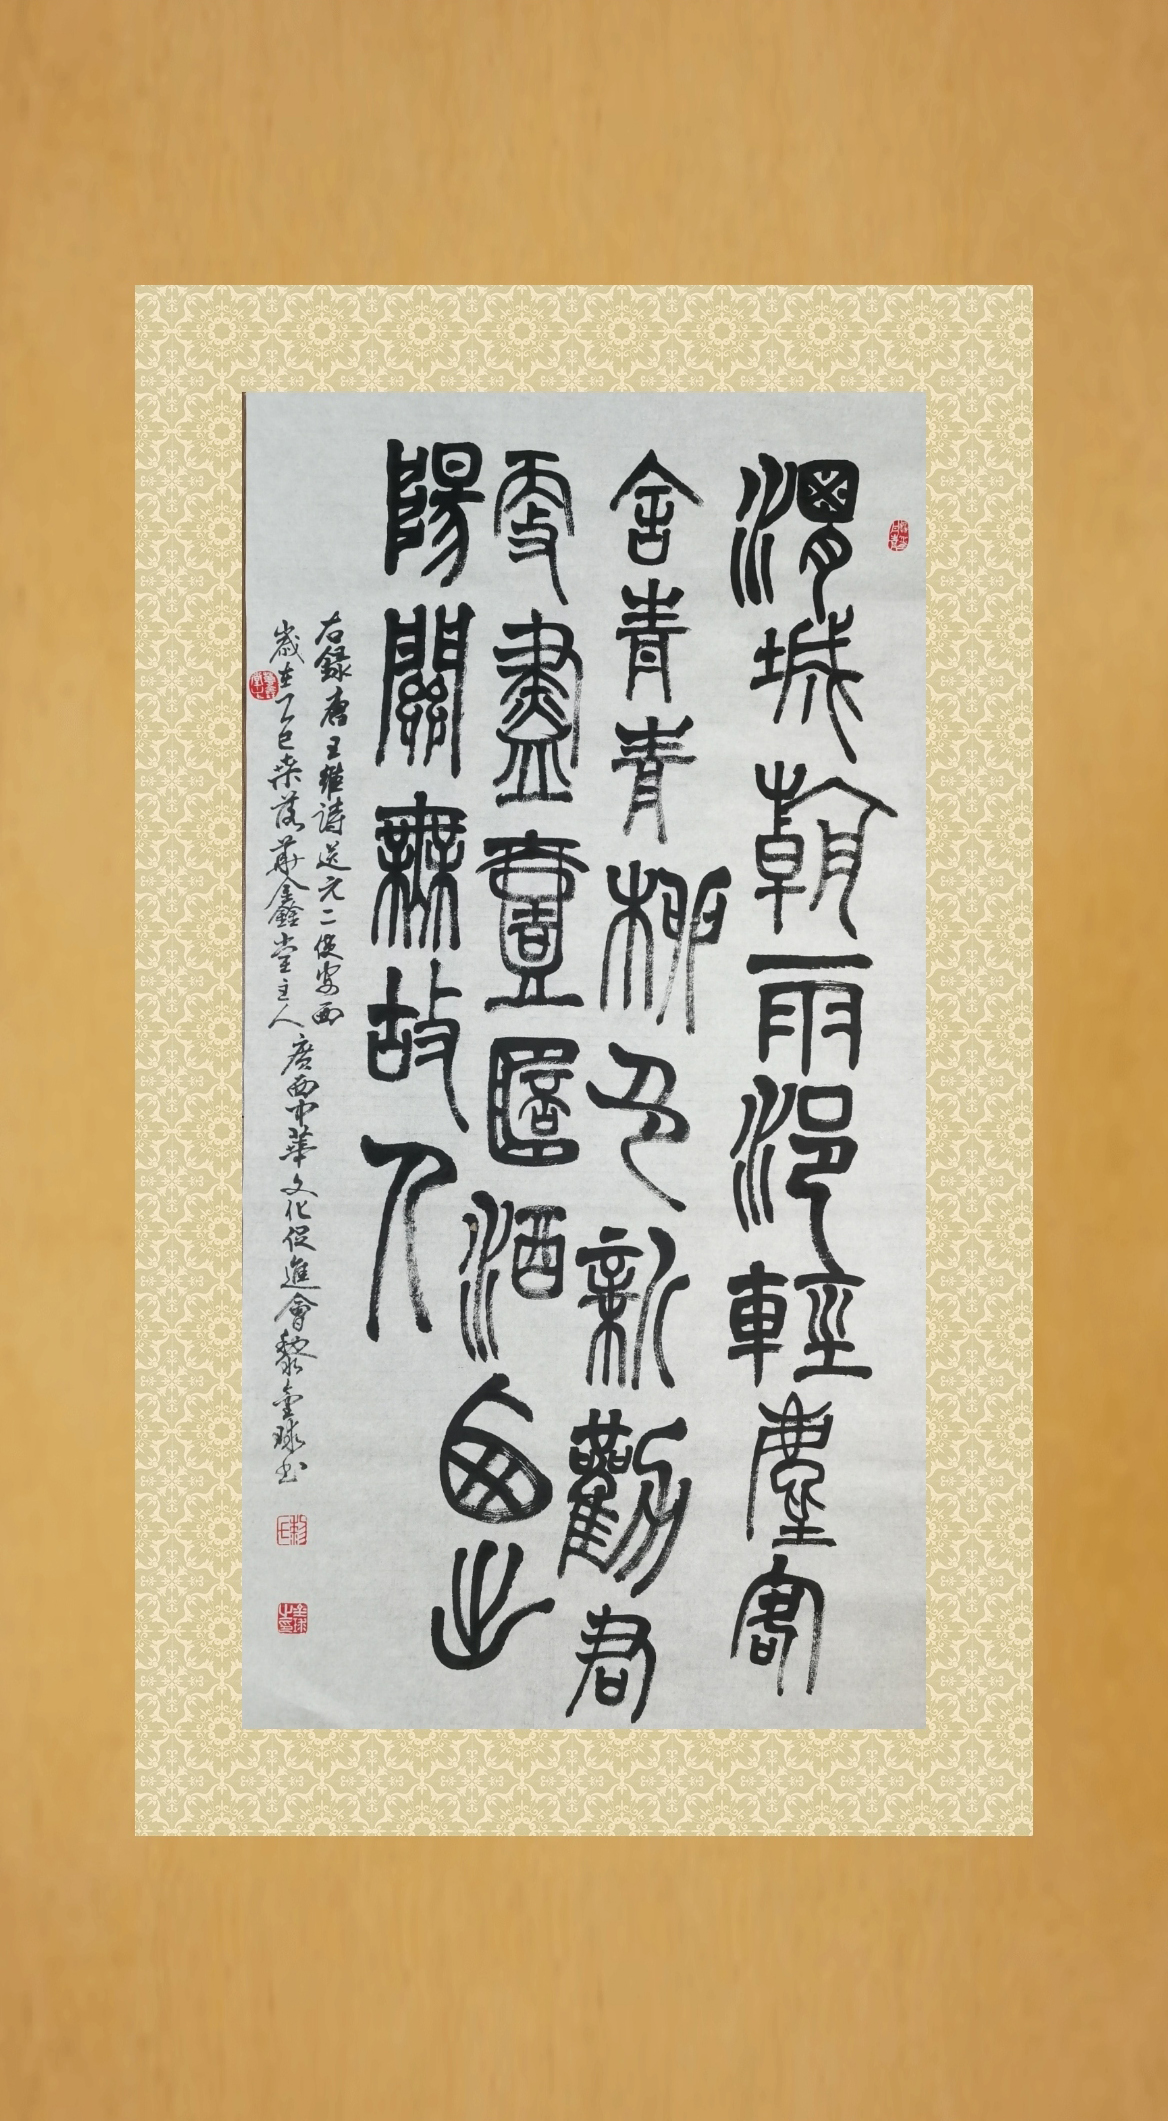 渭城朝雨浥輕塵客
舍青青柳色新勸君
更盡壹杯酒西出
陽關無故人
右録唐王維詩送元二使安西
歲在乙巳柒落華鑫堂主人
廣西中華文化促進會黎金球书